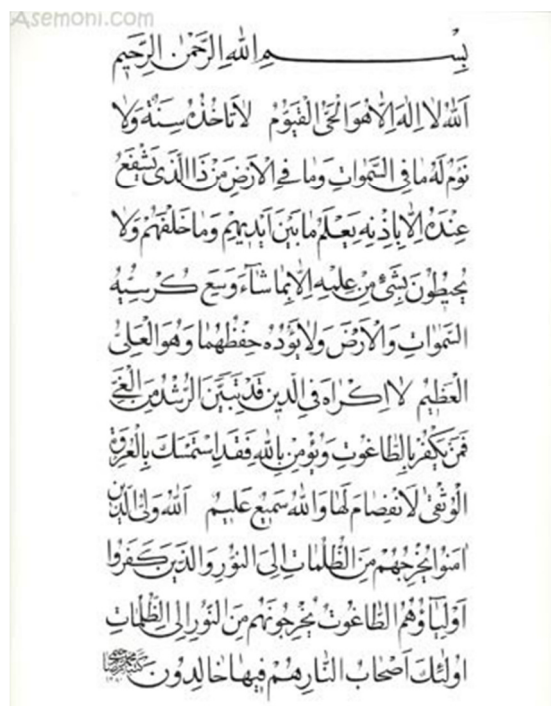 Asemoni.com
بِسْمِ اللهِ الرَّحْمٰنِ الرَّحِیمِ
اَللهُ لا اِلٰهَ اِلاّٰ هُوَ الْحَیُّ الْقَیُّومُ لاٰ تَأخُذُهُ سِنَةٌ وَلاٰ
نَوْمٌ لَهُ مٰا فِی السَّمٰوٰاتِ وَمٰا فِی الْاَرْضِ مَنْ ذَا الَّذی یَشْفَعُ
عِنْدَهُ اِلاّٰ بِاِذْنِهِ یَعْلَمُ مٰا بَیْنَ اَیْدیهِمْ وَمٰا خَلْفَهُمْ وَلاٰ
یُحیطُونَ بِشَیْءٍ مِنْ عِلْمِهِ اِلاّٰ بِمٰا شٰاءَ وَسِعَ کُرْسِیُّهُ
السَّمٰوٰاتِ وَالْاَرْضَ وَلاٰ یَؤُدُهُ حِفْظُهُمٰا وَهُوَ الْعَلِیُّ
الْعَظیمُ لاٰ اِکْرٰاهَ فِی الدّینِ قَدْ تَبَیَّنَ الرُّشْدُ مِنَ الْغَیِّ
فَمَنْ یَکْفُرْ بِالطّٰاغُوتِ وَیُؤْمِنْ بِاللهِ فَقَدِ اسْتَمْسَکَ بِالْعُرْوَةِ
الْوُثْقیٰ لاَ انْفِصٰامَ لَهٰا وَاللهُ سَمیعٌ عَلیمٌ اَللهُ وَلِیُّ الَّذینَ
اٰمَنُوا یُخْرِجُهُمْ مِنَ الظُّلُمٰاتِ اِلَی النُّورِ وَالَّذینَ کَفَرُوا
اَوْلِیٰاؤُهُمُ الطّٰاغُوتُ یُخْرِجُونَهُمْ مِنَ النُّورِ اِلَی الظُّلُمٰاتِ
اُولٰئِکَ اَصْحٰابُ النّٰارِ هُمْ فیهٰا خٰالِدُونَ